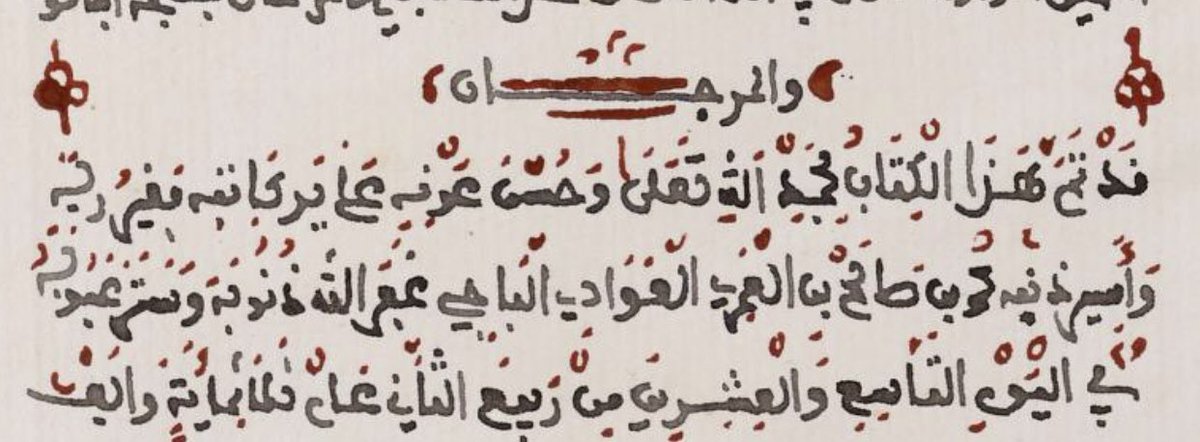 والمرجان
قَدْ تَمَّ هَذَا الْكِتَابُ بِحَمْدِ اللَّهِ تَعَالَى وَحُسْنِ عَوْنِهِ عَلَى يَدِ كَاتِبِهِ فَقِيرُ رَبِّهِ
وَأَسِيرِ ذَنْبِهِ محمد بن صالح بن العربي الباجي غَفَرَ اللَّهُ ذُنُوبَهُ وَسَتَرَ عُيُوبَهُ
فِي الْيَوْمِ التَّاسِعِ وَالْعِشْرِينَ مِنْ رَبِيعِ الثَّانِي عَامْ ثَلَاثِمِائَةٍ وَأَلْف